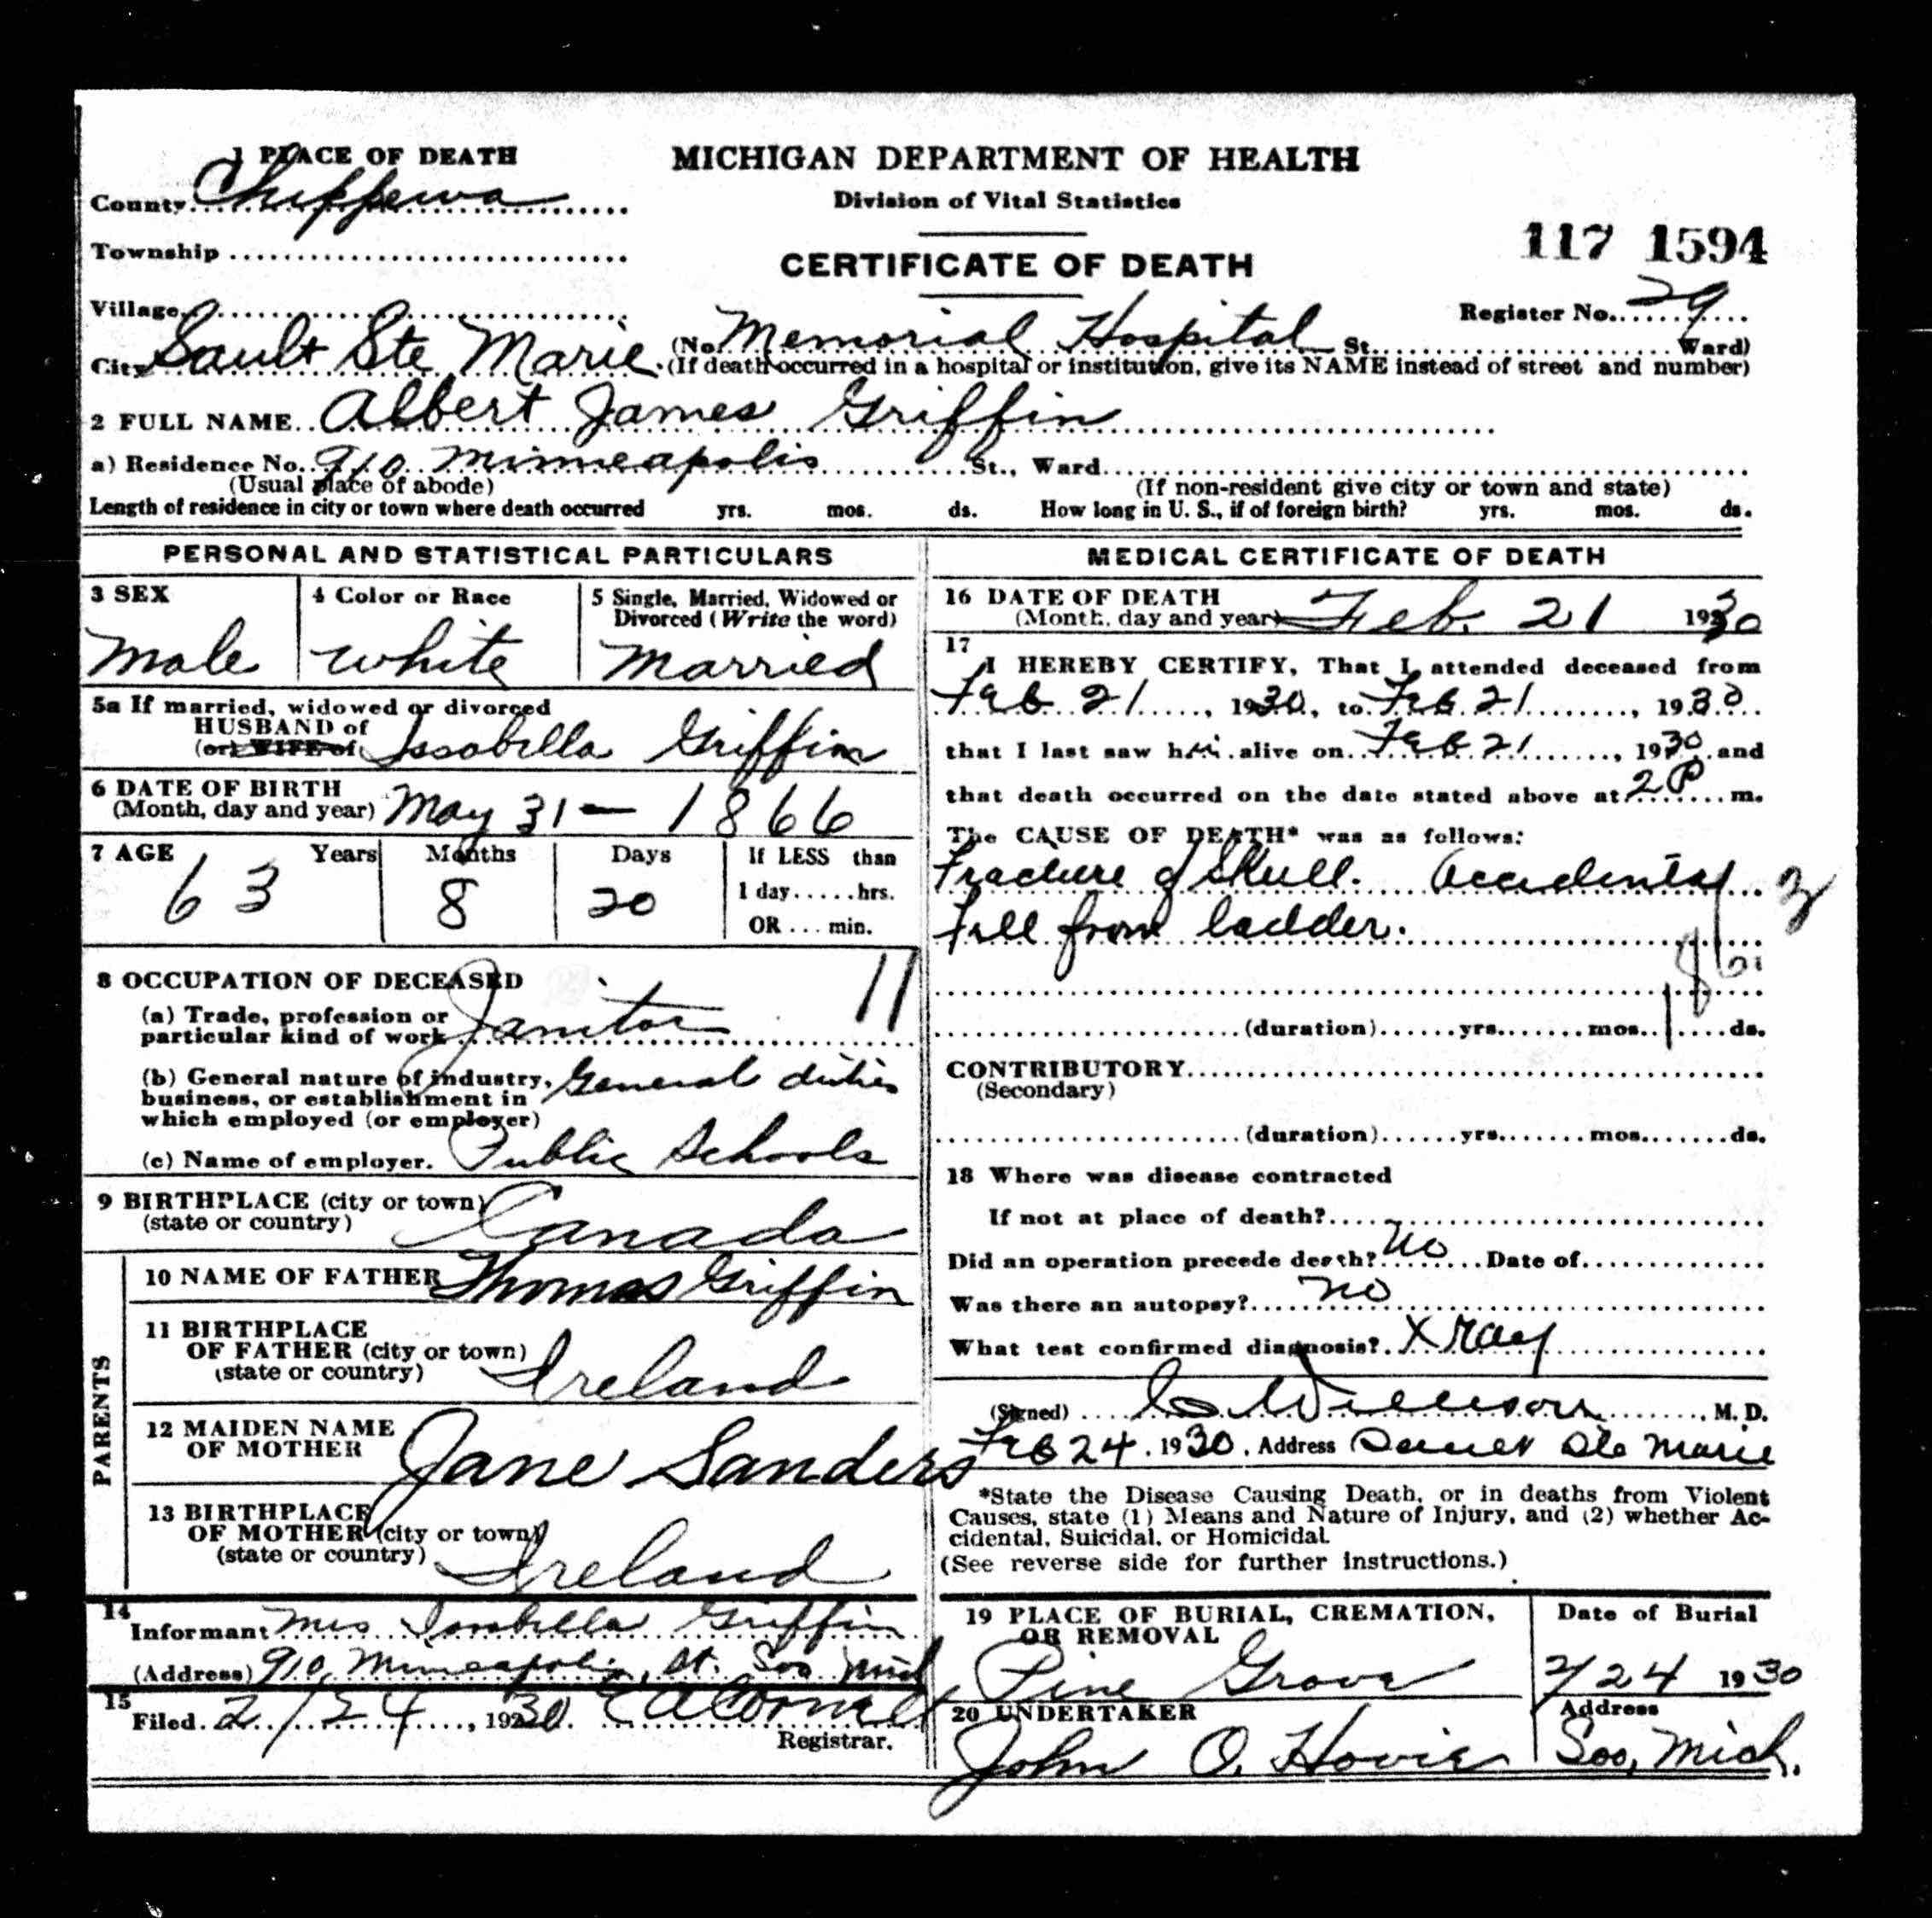 1 PLACE OF DEATH
MICHIGAN DEPARTMENT OF HEALTH
County Chippewa
Division of Vital Statistics
Township
117 1594
CERTIFICATE OF DEATH
Village
Register No. 29
City Sault Ste Marie (No. Memorial Hospital St. Ward)
(If death occurred in a hospital or institution, give its NAME instead of street and number)
2 FULL NAME Albert James Griffin
a) Residence No. 910 Minneapolis St., Ward
(Usual place of abode) (If non-resident give city or town and state)
Length of residence in city or town where death occurred yrs. mos. ds. How long in U. S., if of foreign birth? yrs. mos. ds.
PERSONAL AND STATISTICAL PARTICULARS
3 SEX
Male
4 Color or Race
White
5 Single, Married, Widowed or
Divorced (Write the word)
Married
5a If married, widowed or divorced
HUSBAND of
(or) WIFE of Issabella Griffin
6 DATE OF BIRTH
(Month, day and year) May 31 - 1866
7 AGE Years Months Days If LESS than
63 8 20 1 day......hrs.
OR ... min.
8 OCCUPATION OF DECEASED 11
(a) Trade, profession or
particular kind of work Janitor
(b) General nature of industry, General duties
business, or establishment in
which employed (or employer)
(c) Name of employer. Public Schools
9 BIRTHPLACE (city or town)
(state or country) Canada
PARENTS
10 NAME OF FATHER Thomas Griffin
11 BIRTHPLACE
OF FATHER (city or town)
(state or country) Ireland
12 MAIDEN NAME
OF MOTHER Jane Sanders
13 BIRTHPLACE
OF MOTHER (city or town)
(state or country) Ireland
14
Informant Mrs Isabella Griffin
(Address) 910 Minneapolis St. Soo Mich
15
Filed 2/24, 1930
Registrar.
MEDICAL CERTIFICATE OF DEATH
16 DATE OF DEATH
(Month, day and year) Feb. 21 1930
17
I HEREBY CERTIFY, That I attended deceased from
Feb 21, 1930, to Feb 21, 1930
that I last saw him alive on Feb 21, 1930 and
that death occurred on the date stated above at 2 P m.
The CAUSE OF DEATH* was as follows:
Fracture of Skull. Accidental
Fall from ladder.
(duration) yrs. mos. 1 ds.
CONTRIBUTORY
(Secondary)
(duration) yrs. mos. ds.
18 Where was disease contracted
If not at place of death?
Did an operation precede death? No Date of
Was there an autopsy? no
What test confirmed diagnosis? X ray
(Signed) C Willison, M. D.
Feb 24, 1930, Address Sault Ste Marie
*State the Disease Causing Death, or in deaths from Violent
Causes, state (1) Means and Nature of Injury, and (2) whether Ac-
cidental, Suicidal, or Homicidal.
(See reverse side for further instructions.)
19 PLACE OF BURIAL, CREMATION,
OR REMOVAL
Pine Grove
Date of Burial
2/24 1930
20 UNDERTAKER
John O. Hovie
Address
Soo, Mich.